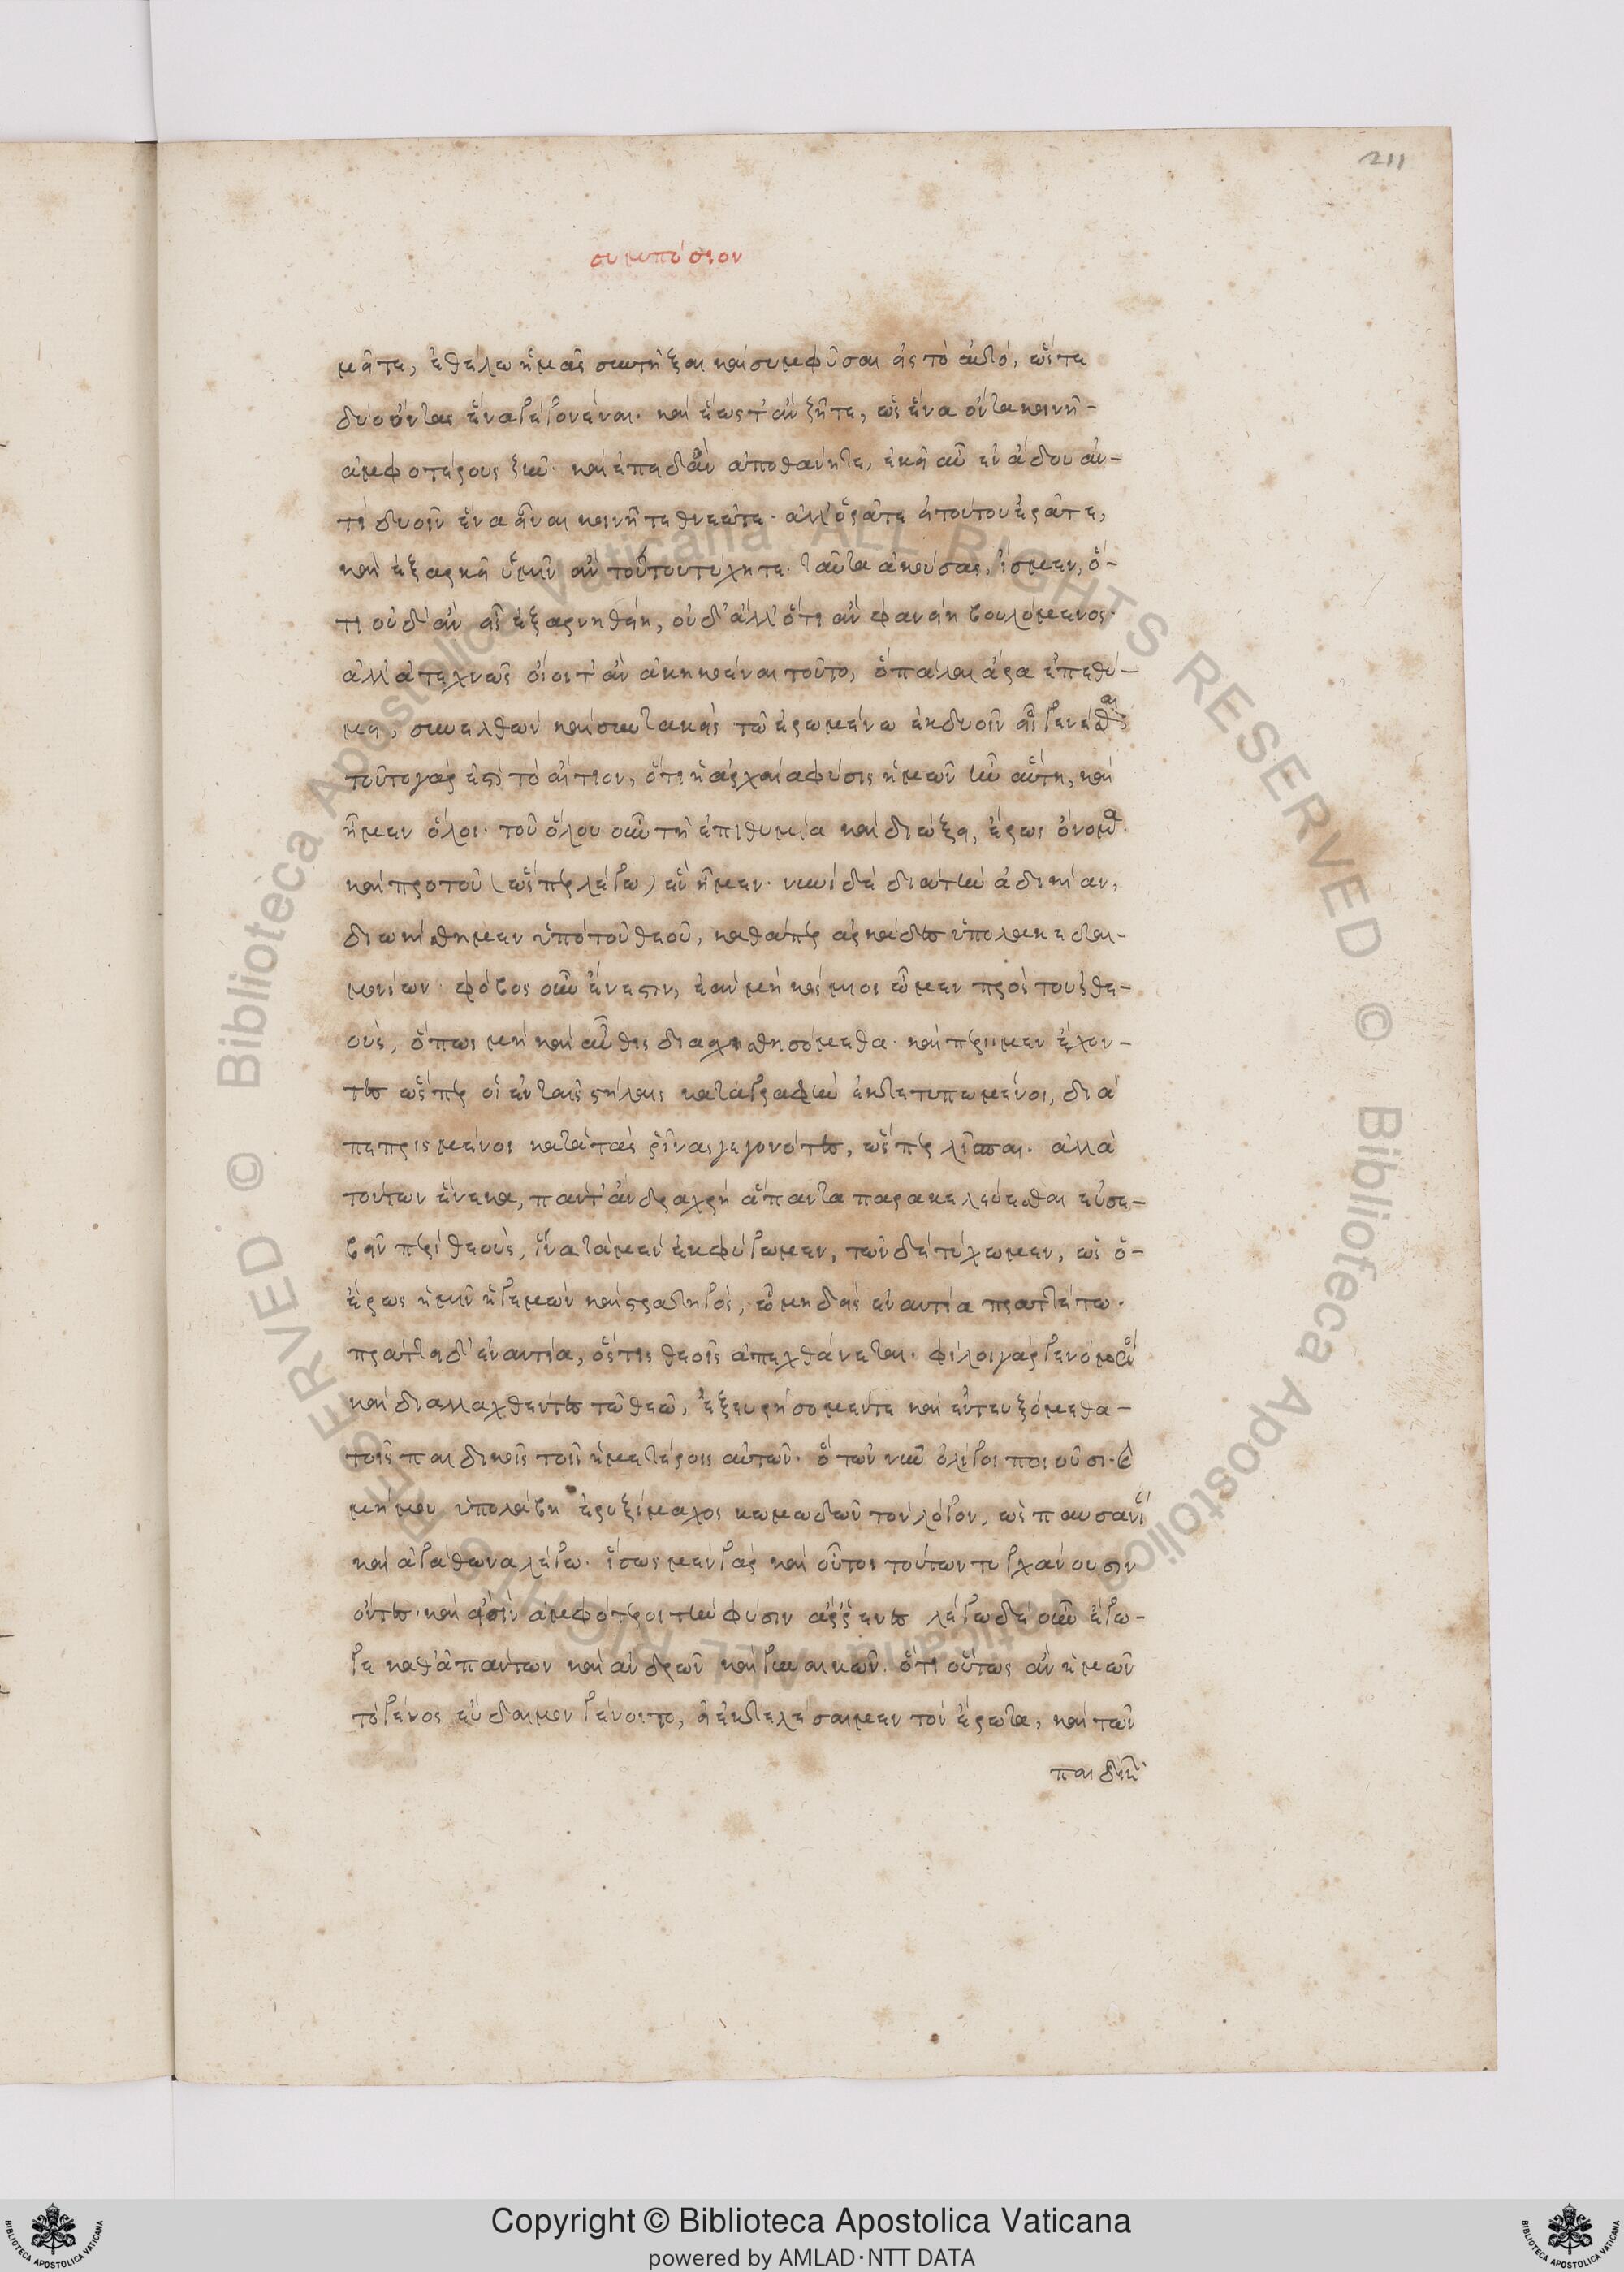 211
συμπόσιον
μεῖτε, ἐθέλω ἡμᾶς συντῆξαι καὶ συμφῦσαι εἰς τὸ αὐτό, ὥστε
δύο ὄντας ἕνα γεγονέναι. καὶ ἕως τ' ἂν ζῆτε, ὡς ἕνα ὄντα κοινῆ-
ἀμφοτέρους ζῆν. καὶ ἐπειδὰν ἀποθάνητε, ἐκεῖ αὖ ἐν ἅδου ἀν-
τὶ δυοῖν ἕνα εἶναι κοινῆ τεθνεῶτε. ἀλλ' ὁρᾶτε εἰ τούτου ἐρᾶτε,
καὶ ἐξαρκεῖ ὑμῖν ἂν τούτου τύχητε. ταῦτα ἀκούσας, ἴσμεν, ὅ-
τι οὐδ' ἂν εἷς ἐξαρνηθείη, οὐδ' ἄλλ' ὅτι ἂν φανείη βουλόμενος.
ἀλλ' ἀτεχνῶς οἴοιτ' ἂν ἀκηκοέναι τοῦτο, ὃ πάλαι ἄρα ἐπεθύ-
μει, συνελθὼν καὶ συντακεὶς τῶ ἐρωμένω ἐκ δυοῖν εἷς γενέσθαι.
τοῦτο γάρ ἐστι τὸ αἴτιον, ὅτι ἡ ἀρχαία φύσις ἡμῶν ἦν αὕτη, καὶ
ἦμεν ὅλοι. τοῦ ὅλου οὖν τῆ ἐπιθυμία καὶ διώξει, ἔρως ὄνομα.
καὶ προτοῦ (ὥσπερ λέγω) ἓν ἦμεν. νυνὶ δὲ διὰ τὴν ἀδικίαν,
διωκίσθημεν ὑπὸ τοῦ θεοῦ, καθάπερ ἀρκάδες ὑπὸ λακεδαι-
μονίων. φόβος οὖν ἔνεστιν, ἐὰν μὴ κόσμιοι ὦμεν πρὸς τοὺς θε-
οὺς, ὅπως μὴ καὶ αὖθις διασχισθησόμεθα. καὶ περίιμεν ἔχον-
τες ὥσπερ οἱ ἐν ταῖς στήλαις καταγραφὴν ἐκτετυπωμένοι, δια
πεπρισμένοι κατὰ τὰς ῥῖνας γεγονότες, ὥσπερ λίσπαι. ἀλλὰ
τούτων ἕνεκα, πάντ' ἄνδρα χρὴ ἅπαντα παρακελεύεσθαι εὐσε-
βεῖν περὶ θεοὺς, ἵνα τὰ μὲν ἐκφύγωμεν, τῶν δὲ τύχωμεν, ὡς ὁ-
ἔρως ἡμῖν ἡγεμὼν καὶ στρατηγὸς, ὧ μηδεὶς ἐναντία πραττέτω.
πράττει δ' ἐναντία, ὅστις θεοῖς ἀπεχθάνεται. φίλοι γὰρ γενόμενοι
καὶ διαλλαχθέντες τῶ θεῶ, ἐξευρήσομέντε καὶ ἐντευξόμεθα-
τοῖς παιδικοῖς τοῖς ἡμετέροις αὐτῶν. ὃ τῶν νῦν ὀλίγοι ποιοῦσι. καὶ
μή μου ὑπολάβη ἐρυξίμαχος κωμωδῶν τὸν λόγον, ὡς παυσανίαν
καὶ ἀγάθωνα λέγω. ἴσως μὲν γὰρ καὶ οὗτοι τούτων τυγχάνουσιν
ὄντες. καὶ εἰσὶν ἀμφότεροι τὴν φύσιν ἄῤῥενες λέγω δὲ οὖν ἔγω-
γε καθ' ἁπάντων καὶ ἀνδρῶν καὶ γυναικῶν. ὅτι οὕτως ἂν ἡμῶν
τὸ γένος εὔδαιμον γένοιτο, εἰ ἐκτελέσαιμεν τὸν ἔρωτα, καὶ τῶν
παιδικ
© Biblioteca Apostolica Vaticana ALL RIGHTS RESERVED © Biblioteca Apostolica Vaticana ALL RIGHTS RESERVED
Copyright © Biblioteca Apostolica Vaticana
powered by AMLAD·NTT DATA
BIBLIOTECA APOSTOLICA VATICANA
BIBLIOTECA APOSTOLICA VATICANA